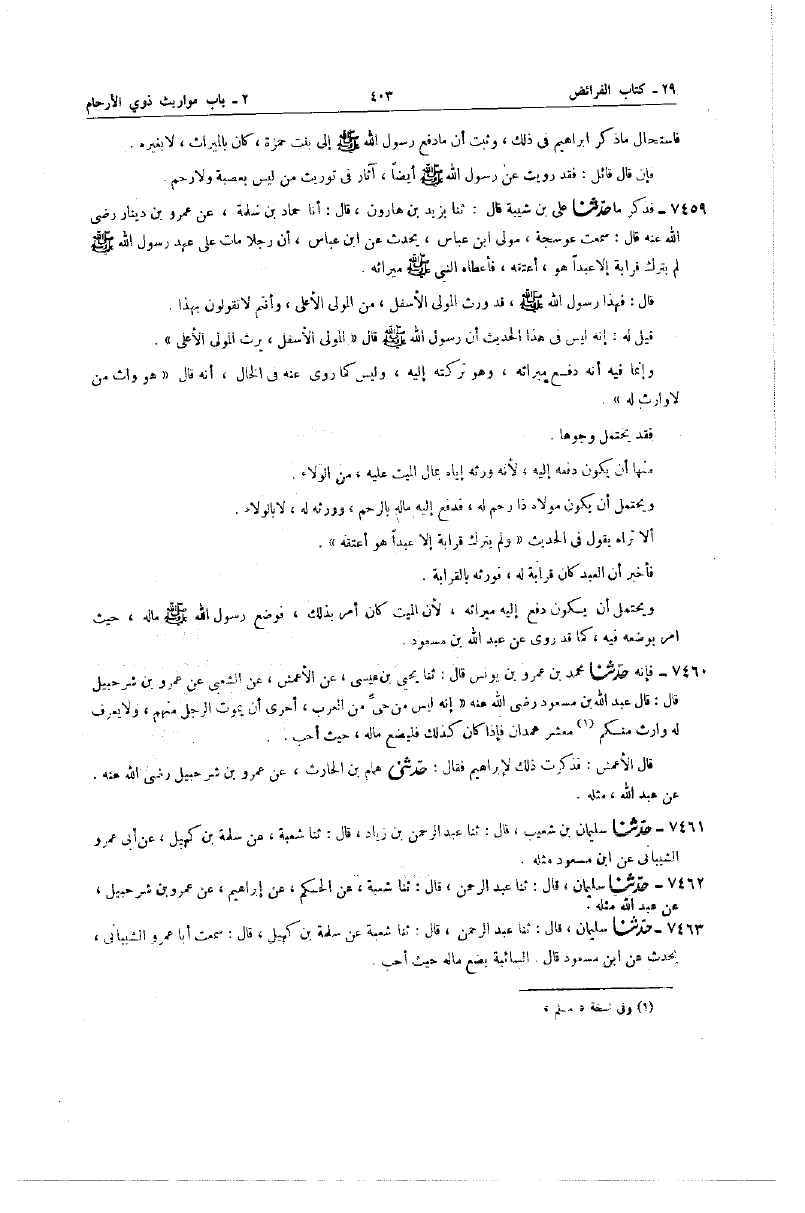 ٢٩ - كتاب الفرائض ٤٠٣ ٢ - باب مواريث ذوي الأرحام
فاستحال ماذكر ابراهيم فى ذلك ، وثبت أن مادفع رسول الله ﷺ إلى بنت حمزة ، كان بالميراث ، لابغيره .
فإن قال قائل : فقد رويت عن رسول الله ﷺ أيضاً ، آثار فى توريث من ليس بعصبة ولارحم .
٧٤٥٩ - فذكر ماحدثنا على بن شيبة قال : ثنا يزيد بن هارون ، قال : أنا حماد بن سلمة ، عن عمرو بن دينار رضى
الله عنه قال : سمعت عوسجة ، مولى ابن عباس ، يحدث عن ابن عباس ، أن رجلا مات على عهد رسول الله ﷺ
لم يترك قرابة إلاعبداً هو ، أعتقه ، فأعطاه النبي ﷺ ميراثه .
قال : فهذا رسول الله ﷺ ، قد ورث المولى الأسفل ، من المولى الأعلى ، وأنتم لاتقولون بهذا .
قيل له : إنه ليس فى هذا الحديث أن رسول الله ﷺ قال « المولى الأسفل ، يرث المولى الأعلى » .
وإنما فيه أنه دفع ميراثه ، وهو تركته إليه ، وليس كما روى عنه فى الخال ، أنه قال « هو واث من
لاوارث له » .
فقد يحتمل وجوها .
منها أن يكون دفعه إليه ، لأنه ورثه إياه بمال الميت عليه ، من الولاء .
ويحتمل أن يكون مولاه ذا رحم له ، فدفع إليه ماله بالرحم ، وورثه له ، لابالولاء .
ألا تراه يقول فى الحديث « ولم يترك قرابة إلا عبداً هو أعتقه » .
فأخبر أن العبد كان قرابة له ، فورثه بالقرابة .
ويحتمل أن يكون دفع إليه ميراثه ، لأن الميت كان أمر بذلك ، فوضع رسول الله ﷺ ماله ، حيث
امر بوضعه فيه ، كما قد روى عن عبد الله بن مسعود .
٧٤٦٠ - فإنه حدثنا محمد بن عمرو بن يونس قال : ثنا يحيى بن عيسى ، عن الأعمش ، عن الشعبي عن عمرو بن شرحبيل
قال : قال عبد الله بن مسعود رضى الله عنه « إنه ليس من حىٍّ من العرب ، أحرى أن يموت الرجل منهم ، ولايعرف
له وارث منكم (١) معشر همدان فإذا كان كذلك فليضع ماله ، حيث أحب .
قال الأعمش : فذكرت ذلك لإبراهيم فقال : حدثني همام بن الحارث ، عن عمرو بن شرحبيل رضى الله عنه .
عن عبد الله ، مثله .
٧٤٦١ - حدثنا سليمان بن شعيب ، قال : ثنا عبد الرحمن بن زياد ، قال : ثنا شعبة ، عن سلمة بن كهيل ، عن أبى عمرو
الشيبانى عن ابن مسعود مثله .
٧٤٦٢ - حدثنا سليمان ، قال : ثنا عبد الرحمن ، قال : ثنا شعبة ، عن الحكم ، عن إبراهيم ، عن عمرو بن شرحبيل ،
عن عبد الله مثله .
٧٤٦٣ - حدثنا سليمان ، قال : ثنا عبد الرحمن ، قال : ثنا شعبة عن سلمة بن كهيل ، قال : سمعت أبا عمرو الشيبانى ،
يحدث عن ابن مسعود قال . السائبة يضع ماله حيث أحب .
(١) وفى نسخة « مسلم »